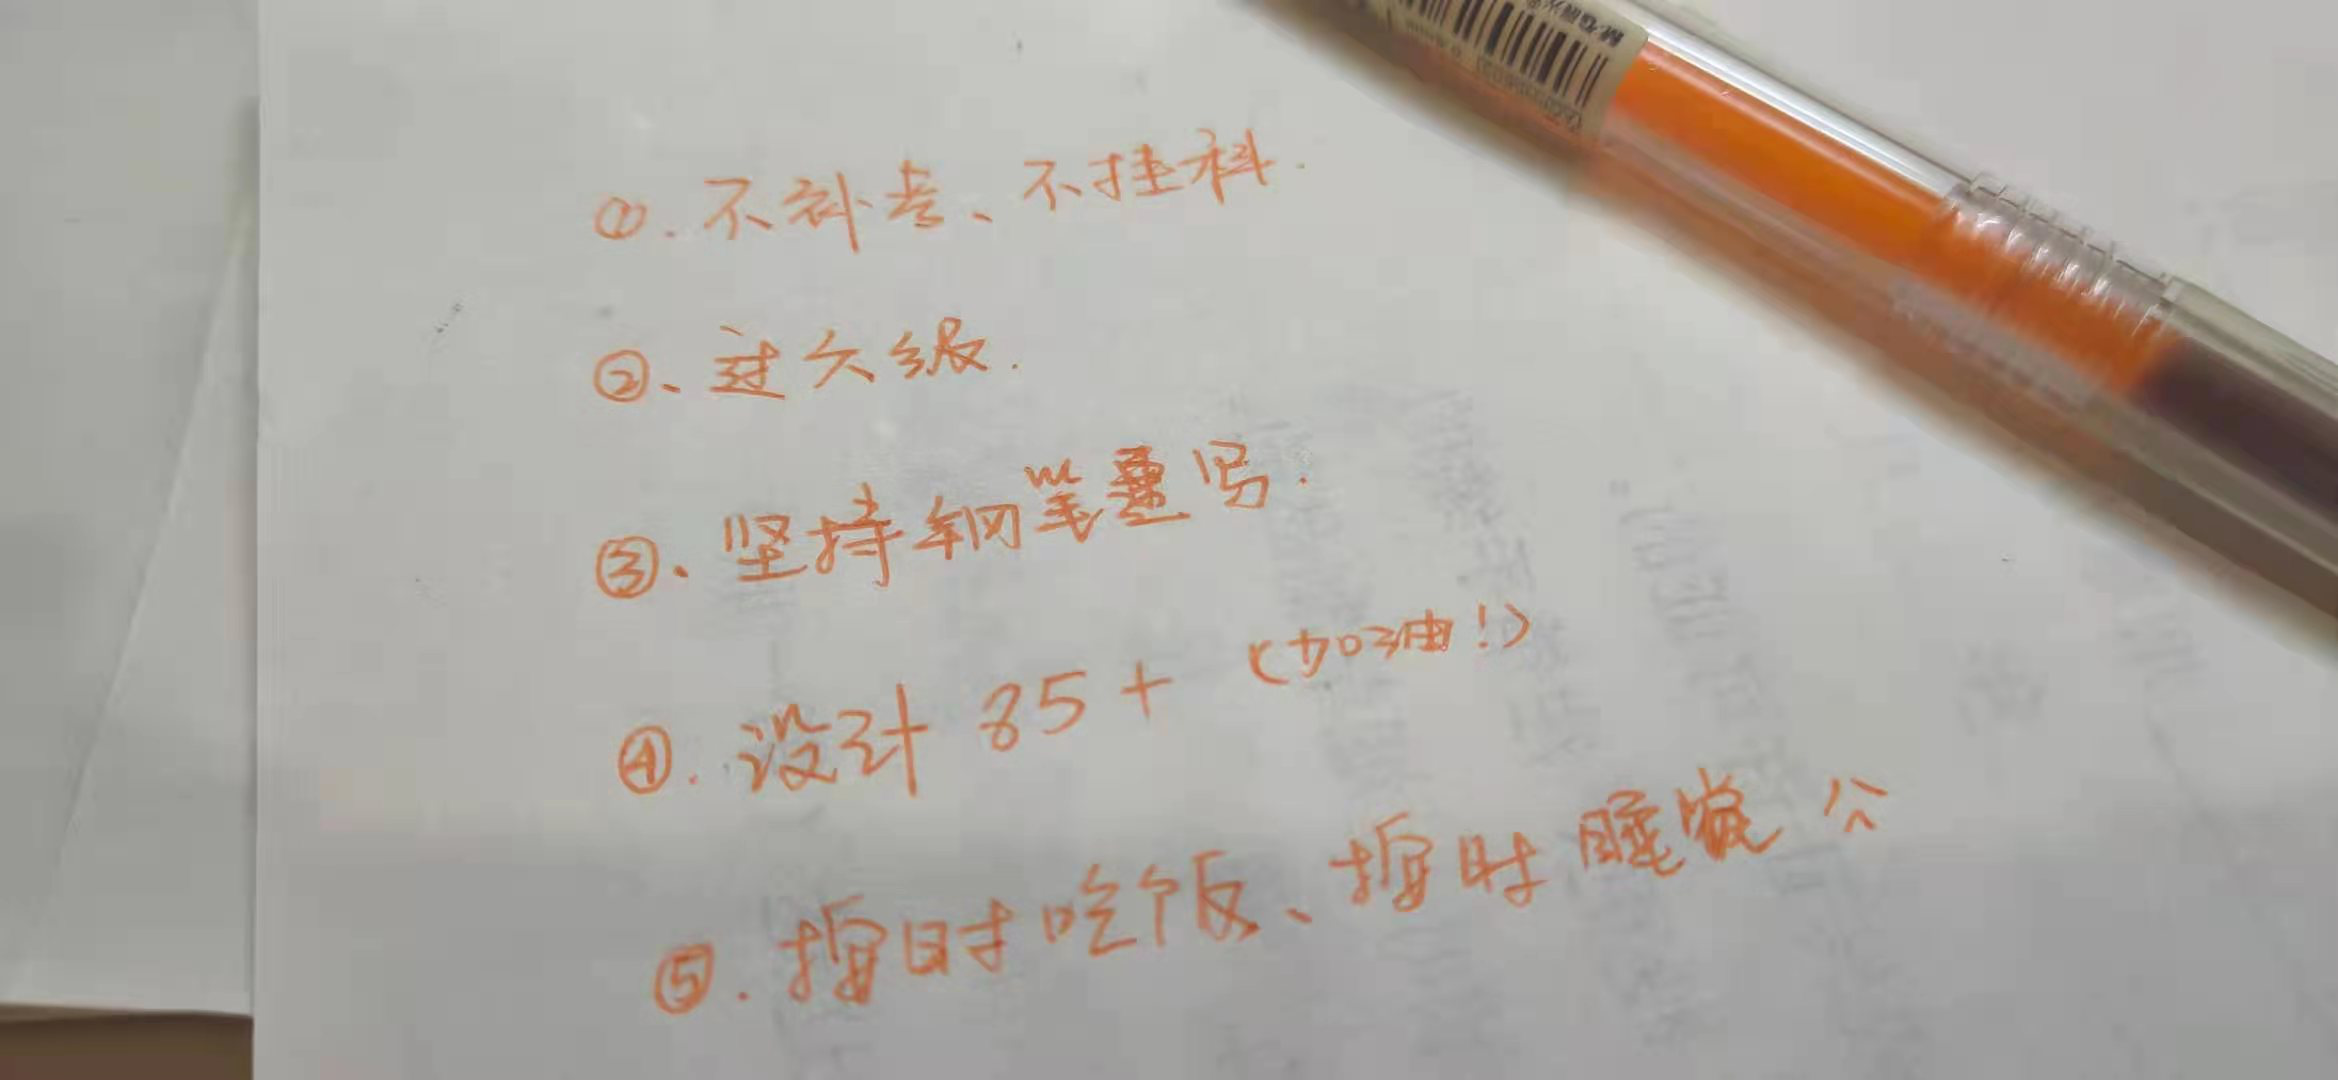 M&G晨光
①. 不补考、不挂科.
②、过六级.
③、坚持钢笔写.
④. 设计 85+ (加油!)
⑤. 按时吃饭、按时睡觉